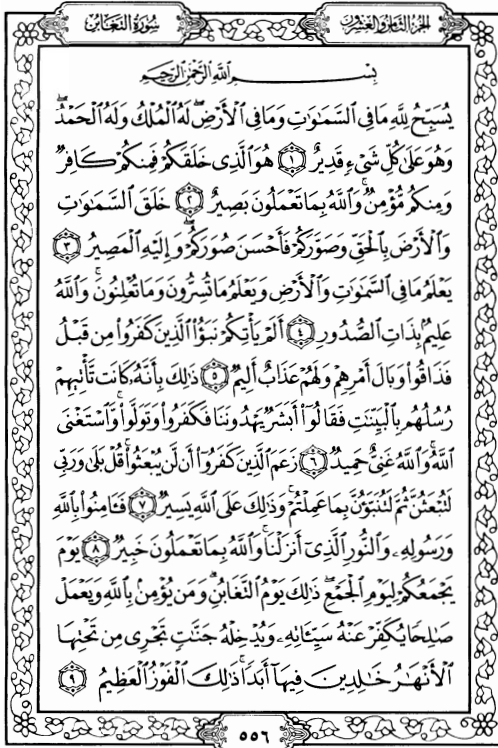 الجزء الثامن والعشرون
سورة التغابن
بِسْمِ ٱللَّهِ ٱلرَّحْمَٰنِ ٱلرَّحِيمِ
يُسَبِّحُ لِلَّهِ مَا فِي ٱلسَّمَٰوَٰتِ وَمَا فِي ٱلْأَرْضِۖ لَهُ ٱلْمُلْكُ وَلَهُ ٱلْحَمْدُۖ
وَهُوَ عَلَىٰ كُلِّ شَيْءٍ قَدِيرٌ ١ هُوَ ٱلَّذِي خَلَقَكُمْ فَمِنكُمْ كَافِرٌ
وَمِنكُم مُّؤْمِنٌۚ وَٱللَّهُ بِمَا تَعْمَلُونَ بَصِيرٌ ٢ خَلَقَ ٱلسَّمَٰوَٰتِ
وَٱلْأَرْضَ بِٱلْحَقِّ وَصَوَّرَكُمْ فَأَحْسَنَ صُوَرَكُمْۖ وَإِلَيْهِ ٱلْمَصِيرُ ٣
يَعْلَمُ مَا فِي ٱلسَّمَٰوَٰتِ وَٱلْأَرْضِ وَيَعْلَمُ مَا تُسِرُّونَ وَمَا تُعْلِنُونَۚ وَٱللَّهُ
عَلِيمٌۢ بِذَاتِ ٱلصُّدُورِ ٤ أَلَمْ يَأْتِكُمْ نَبَؤُا۟ ٱلَّذِينَ كَفَرُوا۟ مِن قَبْلُ
فَذَاقُوا۟ وَبَالَ أَمْرِهِمْ وَلَهُمْ عَذَابٌ أَلِيمٌ ٥ ذَٰلِكَ بِأَنَّهُۥ كَانَت تَّأْتِيهِمْ
رُسُلُهُم بِٱلْبَيِّنَٰتِ فَقَالُوٓا۟ أَبَشَرٌ يَهْدُونَنَا فَكَفَرُوا۟ وَتَوَلَّوا۟ۚ وَّٱسْتَغْنَى
ٱللَّهُۚ وَٱللَّهُ غَنِيٌّ حَمِيدٌ ٦ زَعَمَ ٱلَّذِينَ كَفَرُوٓا۟ أَن لَّن يُبْعَثُوا۟ۚ قُلْ بَلَىٰ وَرَبِّي
لَتُبْعَثُنَّ ثُمَّ لَتُنَبَّؤُنَّ بِمَا عَمِلْتُمْۚ وَذَٰلِكَ عَلَى ٱللَّهِ يَسِيرٌ ٧ فَـَٔامِنُوا۟ بِٱللَّهِ
وَرَسُولِهِۦ وَٱلنُّورِ ٱلَّذِيٓ أَنزَلْنَاۚ وَٱللَّهُ بِمَا تَعْمَلُونَ خَبِيرٌ ٨ يَوْمَ
يَجْمَعُكُمْ لِيَوْمِ ٱلْجَمْعِۖ ذَٰلِكَ يَوْمُ ٱلتَّغَابُنِۗ وَمَن يُؤْمِنۢ بِٱللَّهِ وَيَعْمَلْ
صَٰلِحًا يُكَفِّرْ عَنْهُ سَيِّـَٔاتِهِۦ وَيُدْخِلْهُ جَنَّٰتٍ تَجْرِي مِن تَحْتِهَا
ٱلْأَنْهَٰرُ خَٰلِدِينَ فِيهَآ أَبَدًاۚ ذَٰلِكَ ٱلْفَوْزُ ٱلْعَظِيمُ ٩
٥٥٦